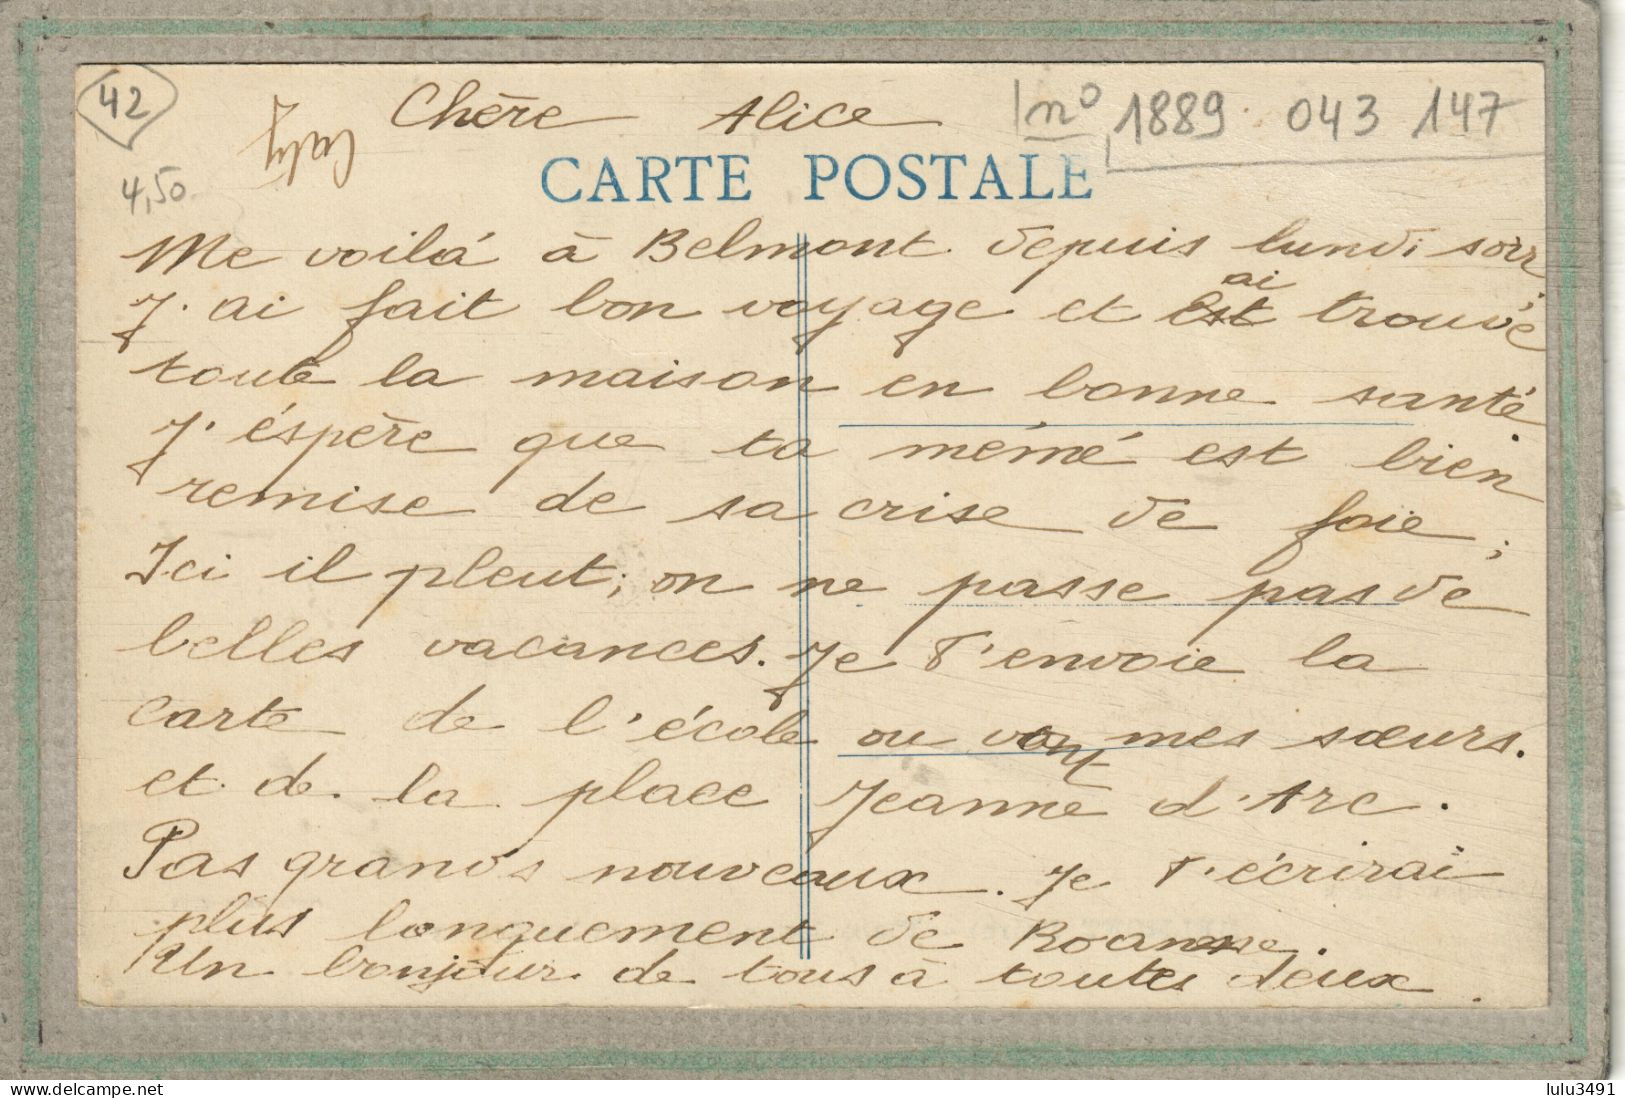 42
Chère Alice
n° 1889. 043 147
4,50
CARTE POSTALE
Me voilá à Belmont depuis lundi soir
J. ai fait bon voyage et est ai trouvé
toute la maison en bonne santé.
J'éspère que ta mémé est bien
remise de sa crise de foie;
Ici il pleut; on ne passe pas de
belles vacances. Je t'envoie la
carte de l'école ou vont mes sœurs.
et de la place Jeanne d'Arc.
Pas grands nouveaux. Je t'écrirai
plus longuement de Roanne.
Un bonjour de tous à toutes deux.
lulu3491